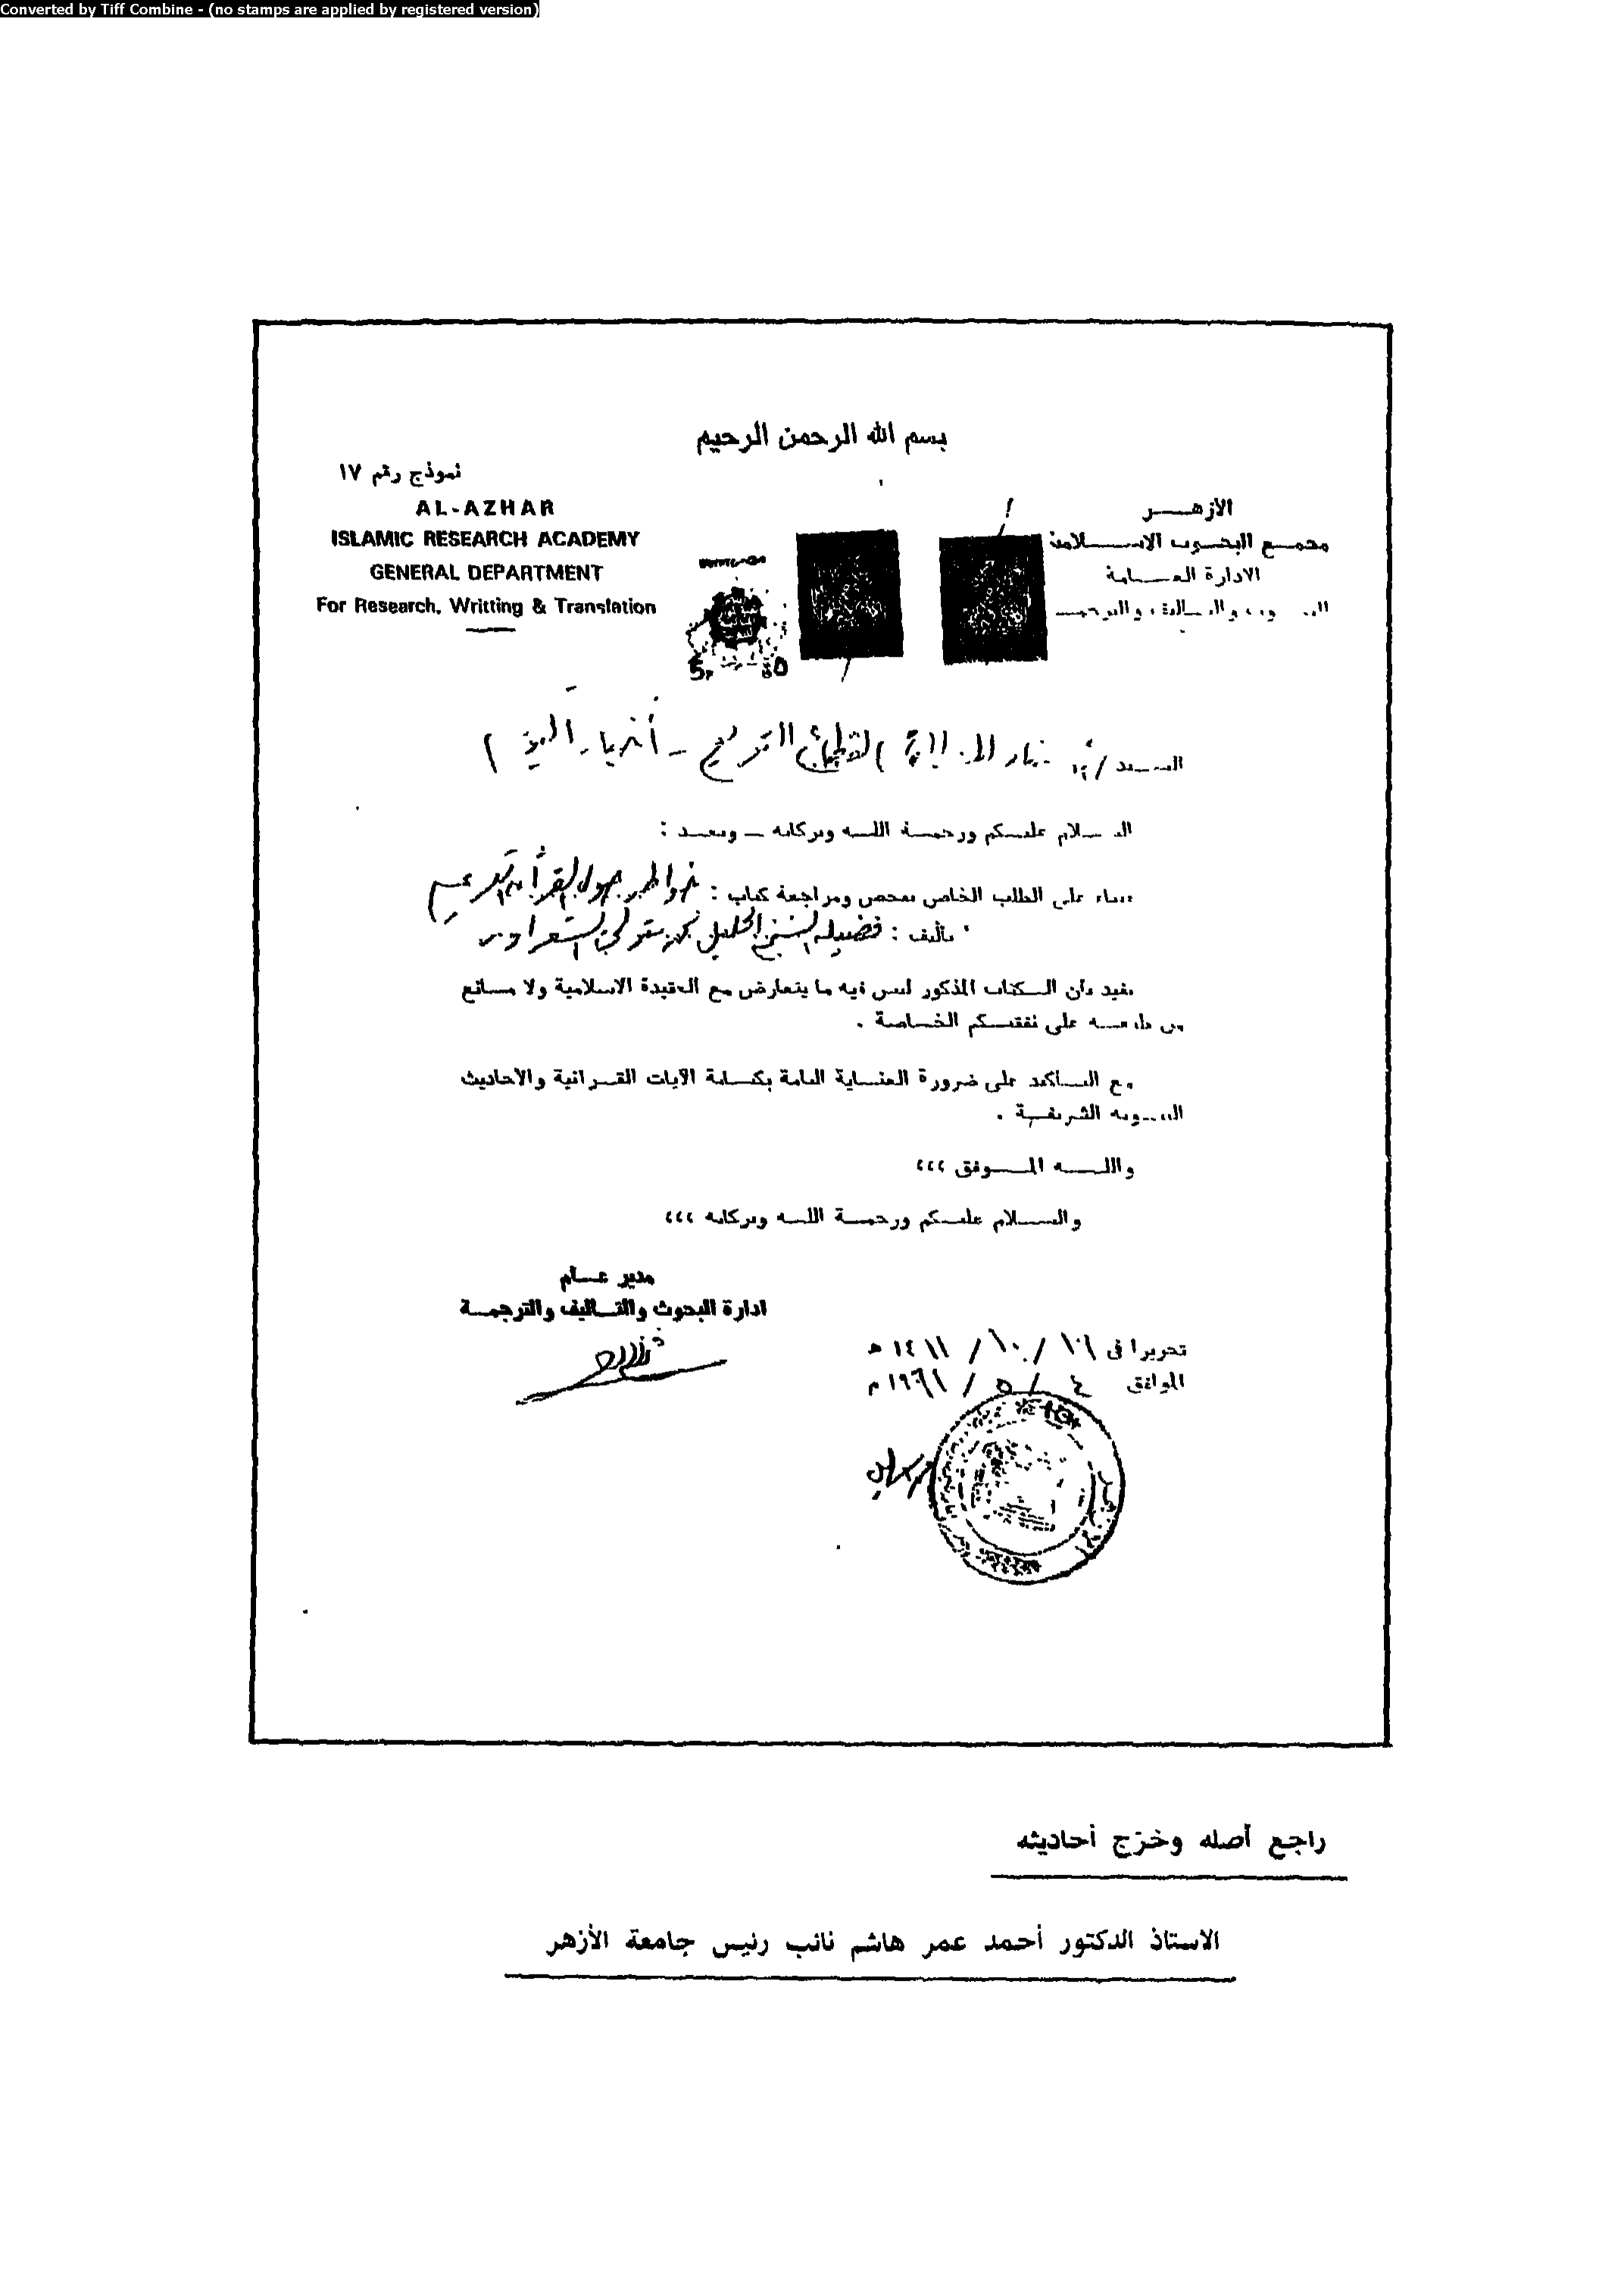 Converted by Tiff Combine - (no stamps are applied by registered version)
بسم الله الرحمن الرحيم
نموذج رقم ١٧
AL-AZHAR
ISLAMIC RESEARCH ACADEMY
GENERAL DEPARTMENT
For Research, Writting & Translation
الازهــر
مجمع البحوث الاسلامية
الادارة العـامة
السيد /
السلام عليكم ورحمة اللـه وبركاته – وبعـد :
بناء على الطلب الخاص بفحص ومراجعة كتاب : خواطر حول القرآن الكريم
تأليف : فضيلة الشيخ الجليل محمد متولي الشعراوي
نفيد بأن الكتاب المذكور ليس فيه ما يتعارض مع العقيدة الاسلامية ولا مانع
من طبعه على نفقتكم الخاصة .
مع التأكيد على ضرورة العناية التامة بكتابة الآيات القرآنية والأحاديث
النبوية الشريفة .
واللـه الموفق ،،،
والسـلام عليكم ورحمة اللـه وبركاته ،،،
مدير عـام
ادارة البحوث والتأليف والترجمة
تحريرا فى / ١٠ / ١٤١١ هـ
الموافق ٤ / ٥ / م
راجع أصله وخرّج أحاديثه
الاستاذ الدكتور أحمد عمر هاشم نائب رئيس جامعة الأزهر